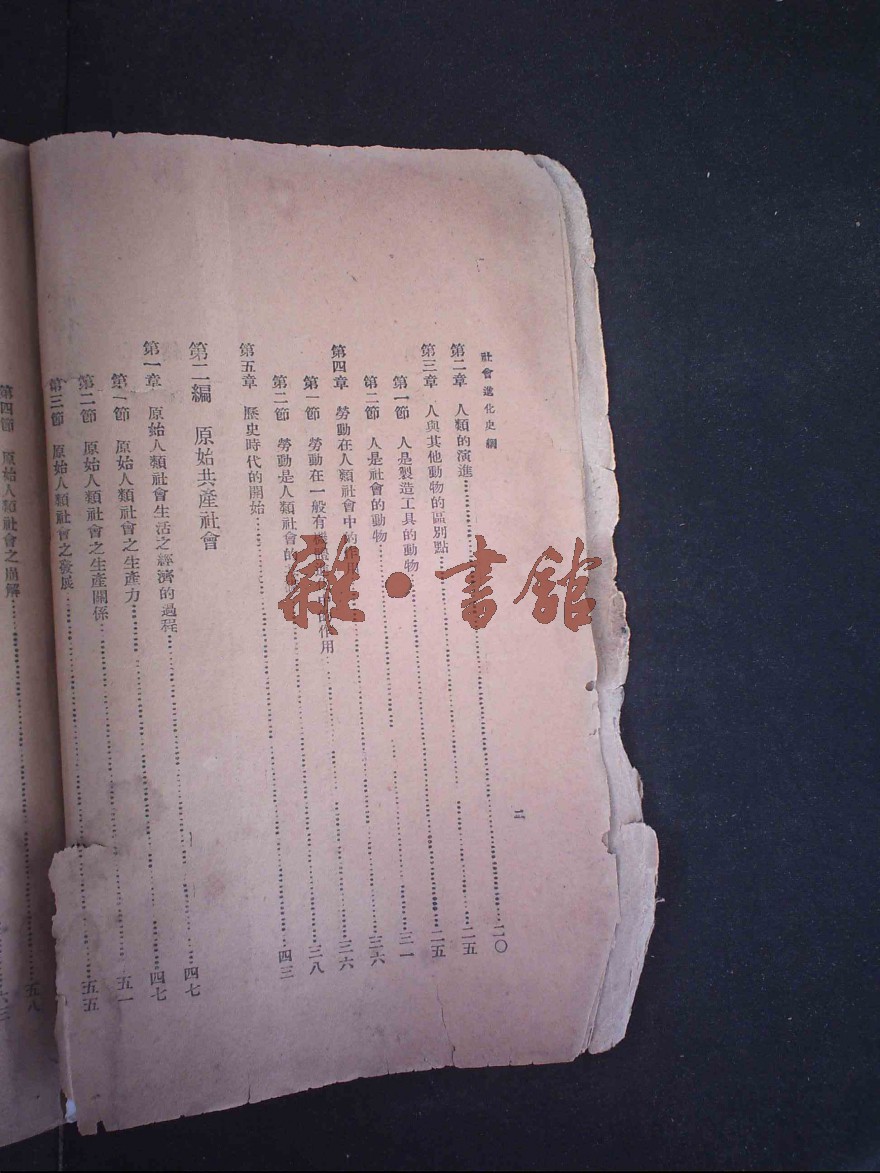 社會進化史綱
二
第二章 人類的演進……二〇
第三章 人與其他動物的區別點……二五
第一節 人是製造工具的動物……二五
第二節 人是社會的動物……三一
第四章 勞動在人類社會中的……三六
第一節 勞動在一般有機體 作用……三六
第二節 勞動是人類社會的……三八
第五章 歷史時代的開始……四三
第二編 原始共產社會
第一章 原始人類社會生活之經濟的過程……四七
第一節 原始人類社會之生產力……四七
第二節 原始人類社會之生產關係……五一
第三節 原始人類社會之發展……五五
第四節 原始人類社會之崩解……五八
六三
雜·書館